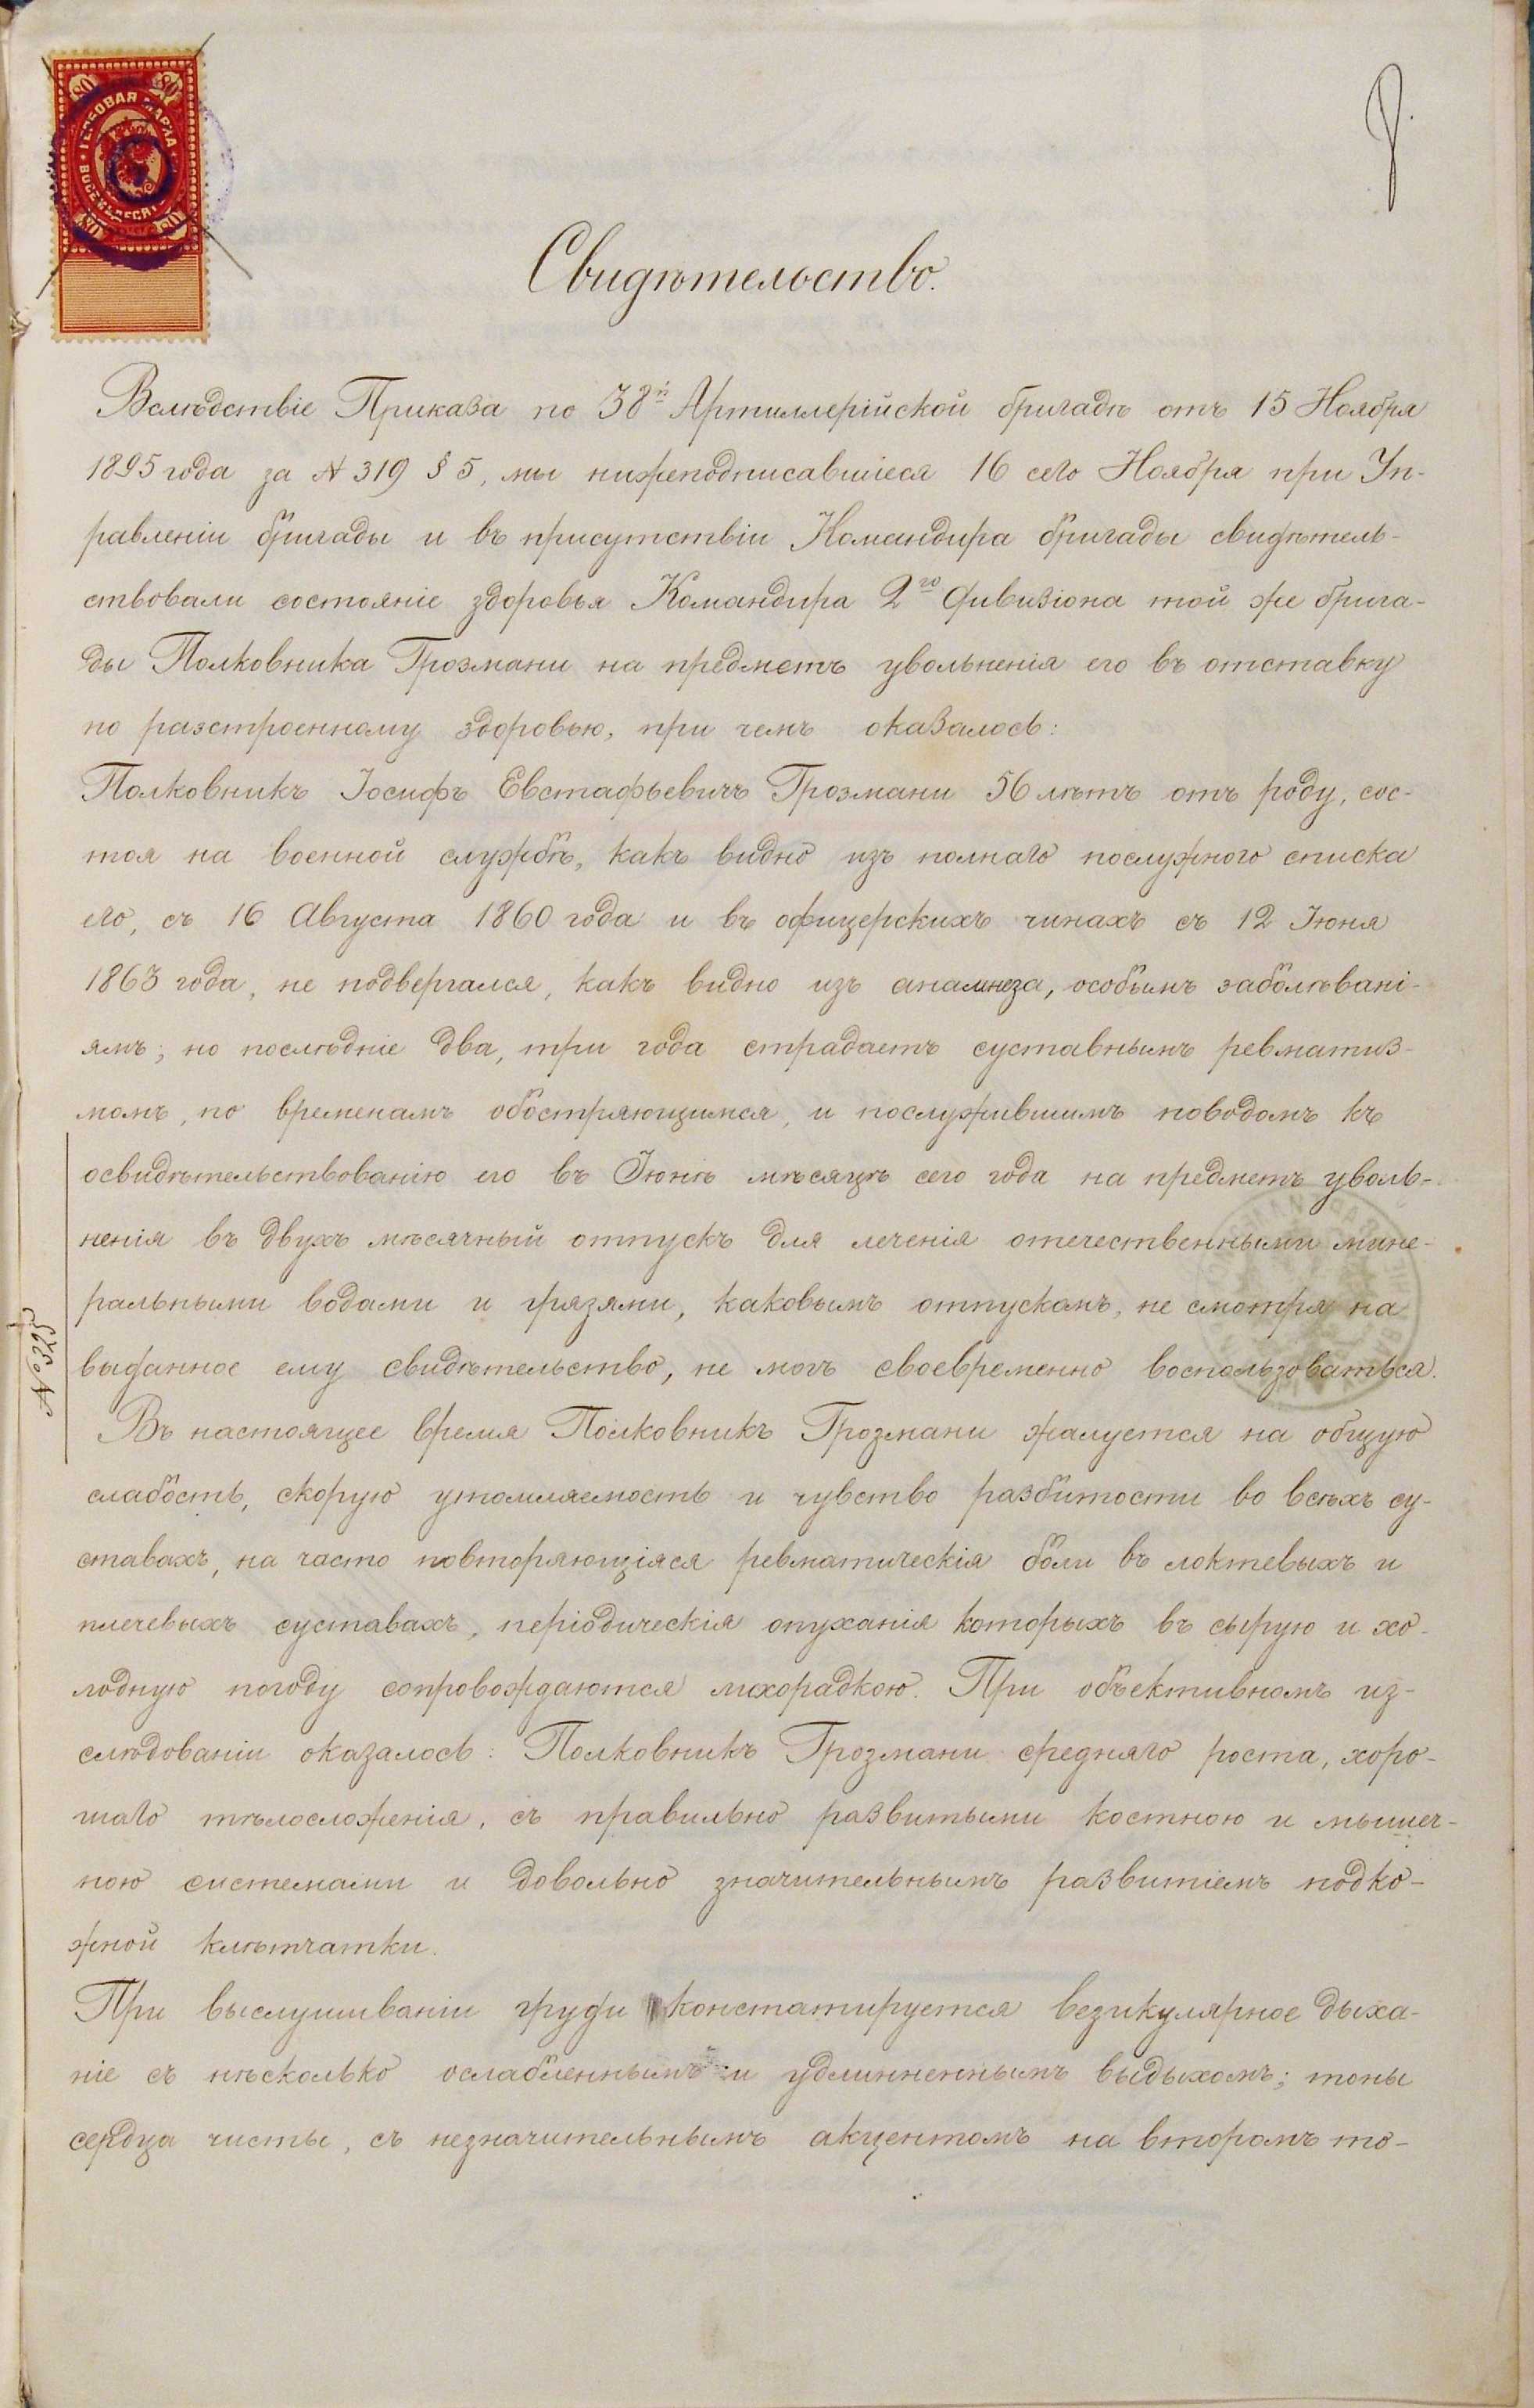 80 80
ГЕРБОВАЯ МАРКА
ВОСЕМЬДЕСЯТ
80 80
Свидѣтельство.
Вслѣдствіе Приказа по 38й Артиллерійской бригадѣ отъ 15 Ноября
1895 года за № 319 § 5, мы нижеподписавшіеся 16 сего Ноября при Уп-
равленіи бригады и въ присутствіи Командира бригады свидѣтель-
ствовали состояніе здоровья Командира 2го дивизіона той же брига-
ды Полковника Грозмани на предметъ увольненія его въ отставку
по разстроенному здоровью, при чемъ оказалось:
Полковникъ Іосифъ Евстафьевичъ Грозмани 56 лѣтъ отъ роду, сос-
тоя на военной службѣ, какъ видно изъ полнаго послужного списка
его, съ 16 Августа 1860 года и въ офицерскихъ чинахъ съ 12 Іюня
1863 года, не подвергался, какъ видно изъ анамнеза, особымъ заболѣвані-
ямъ; но послѣдніе два, три года страдаетъ суставнымъ ревматиз-
момъ, по временамъ обостряющимся, и послужившимъ поводомъ къ
освидѣтельствованію его въ Іюнѣ мѣсяцѣ сего года на предметъ уволь-
ненія въ двухъ мѣсячный отпускъ для леченія отечественными мине-
ральными водами и грязями, каковымъ отпускомъ, не смотря на
выданное ему свидѣтельство, не могъ своевременно воспользоваться.
№ 325
Въ настоящее время Полковникъ Грозмани жалуется на общую
слабость, скорую утомляемость и чувство разбитости во всѣхъ су-
ставахъ, на часто повторяющіяся ревматическія боли въ локтевыхъ и
плечевыхъ суставахъ, періодическія опуханія которыхъ въ сырую и хо-
лодную погоду сопровождаются лихорадкою. При объективномъ из-
слѣдованіи оказалось: Полковникъ Грозмани средняго роста, хоро-
шаго тѣлосложенія, съ правильно развитыми костною и мышеч-
ною системами и довольно значительнымъ развитіемъ подко-
жной клѣтчатки.
При выслушиваніи груди констатируется везикулярное дыха-
ніе съ нѣсколько ослабленнымъ и удлинненнымъ выдыхомъ; тоны
сердца чисты, съ незначительнымъ акцентомъ на второмъ то-